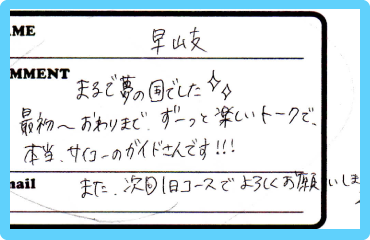 AME 早山支
OMMENT
まるで夢の国でした✧✧
最初〜おわりまで、ずーっと楽しいトークで、
本当、サイコーのガイドさんです!!!
mail また、次回1日コースでよろしくお願いしま